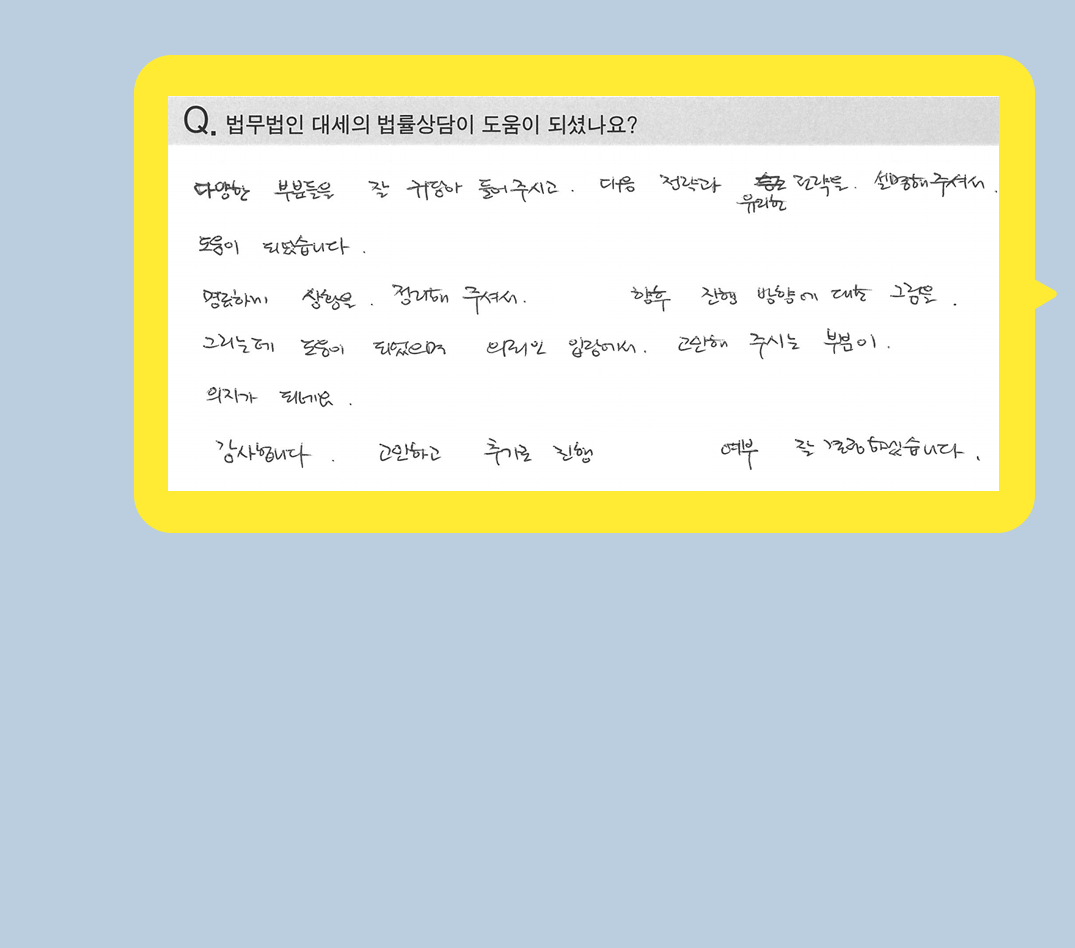 Q. 법무법인 대세의 법률상담이 도움이 되셨나요?
다양한 부분들을 잘 귀담아 들어주시고. 대응 전략과 유리한 전략을. 설명해주셔서.
도움이 되었습니다.
명료하게 상황을. 정리해 주셔서. 향후 진행 방향에 대한 그림을.
그리는데 도움이 되었으며 의뢰인 입장에서. 고민해 주시는 부분이.
의지가 되네요.
감사합니다. 고민하고 추가로 진행 여부 잘 결정하겠습니다.